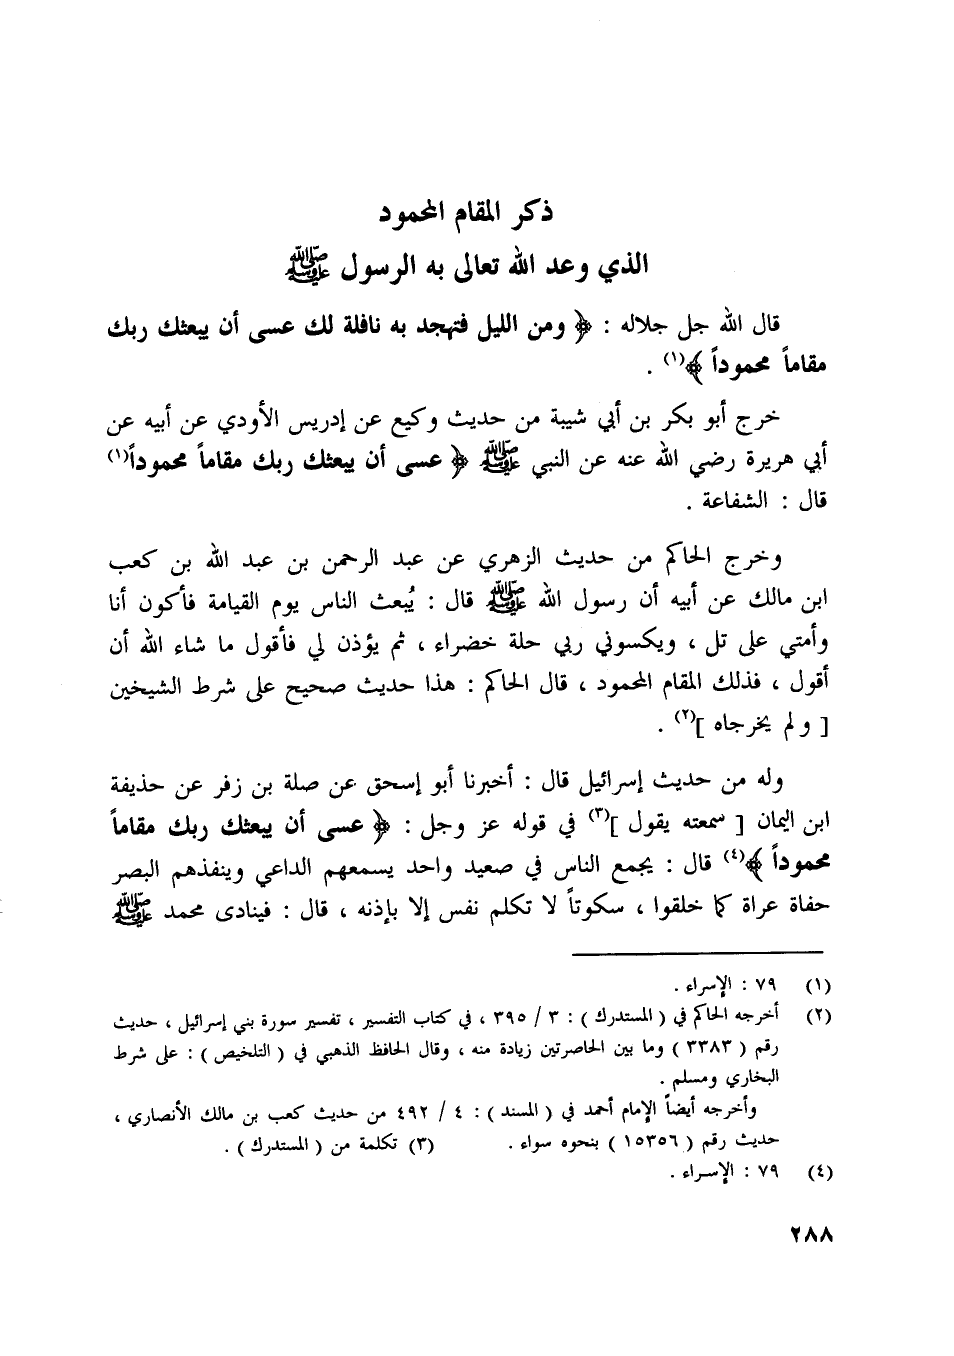 ذكر المقام المحمود
الذي وعد الله تعالى به الرسول ﷺ
قال الله جل جلاله : ﴿ ومن الليل فتهجد به نافلة لك عسى أن يبعثك ربك
مقاماً محموداً ﴾(١) .
خرج أبو بكر بن أبي شيبة من حديث وكيع عن إدريس الأودي عن أبيه عن
أبي هريرة رضي الله عنه عن النبي ﷺ ﴿ عسى أن يبعثك ربك مقاماً محموداً(١)
قال : الشفاعة .
وخرج الحاكم من حديث الزهري عن عبد الرحمن بن عبد الله بن كعب
ابن مالك عن أبيه أن رسول الله ﷺ قال : يُبعث الناس يوم القيامة فأكون أنا
وأمتي على تل ، ويكسوني ربي حلة خضراء ، ثم يؤذن لي فأقول ما شاء الله أن
أقول ، فذلك المقام المحمود ، قال الحاكم : هذا حديث صحيح على شرط الشيخين
[ ولم يخرجاه ](٢) .
وله من حديث إسرائيل قال : أخبرنا أبو إسحق عن صلة بن زفر عن حذيفة
ابن اليمان [ سمعته يقول ](٣) في قوله عز وجل : ﴿ عسى أن يبعثك ربك مقاماً
محموداً ﴾(٤) قال : يجمع الناس في صعيد واحد يسمعهم الداعي وينفذهم البصر
حفاة عراة كما خلقوا ، سكوتاً لا تكلم نفس إلا بإذنه ، قال : فينادى محمد ﷺ
(١) ٧٩ : الإسراء .
(٢) أخرجه الحاكم في ( المستدرك ) : ٣ / ٣٩٥ ، في كتاب التفسير ، تفسير سورة بني إسرائيل ، حديث
رقم ( ٣٣٨٣ ) وما بين الحاصرتين زيادة منه ، وقال الحافظ الذهبي في ( التلخيص ) : على شرط
البخاري ومسلم .
وأخرجه أيضاً الإمام أحمد في ( المسند ) : ٤ / ٤٩٢ من حديث كعب بن مالك الأنصاري ،
حديث رقم ( ١٥٣٥٦ ) بنحوه سواء . (٣) تكلمة من ( المستدرك ) .
(٤) ٧٩ : الإسراء .
٢٨٨